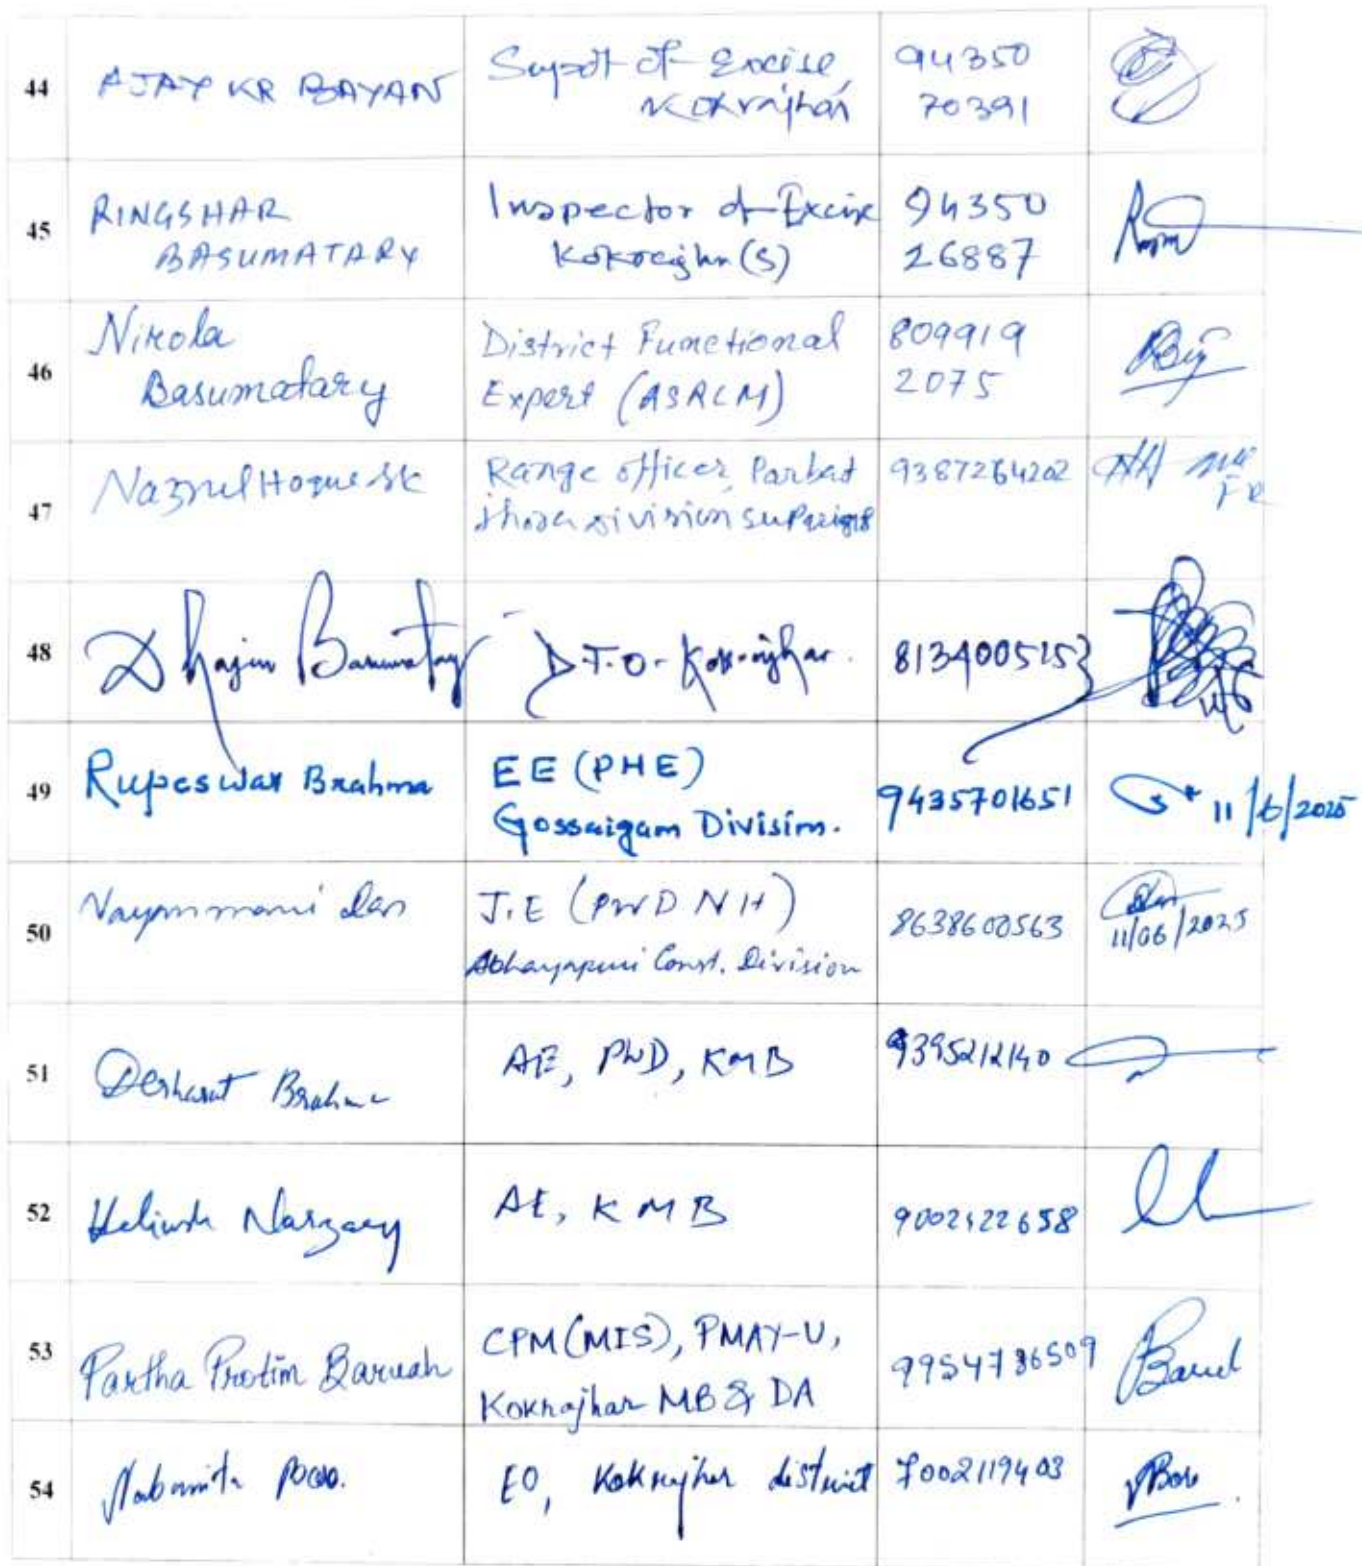 44
AJAY KR BAYAN
Supdt of Excise,
Kokrajhar
94350
70391
45
RINGSHAR
BASUMATARY
Inspector of Excise
Kokrajhar (S)
94350
26887
46
Nirola
Basumatary
District Functional
Expert (ASRLM)
809919
2075
47
Nazrul Hoque Sk
Range officer, Parbat
Jhora Division
9387264202
48
Basumatary
D.T.O - Kokrajhar.
8134005153
49
Rupeswar Brahma
EE (PHE)
Gossaigaon Division.
9435701651
11/6/2025
50
Nayanmani Das
J.E (PWD NH)
Abhayapuri Const. Division
8638600563
11/06/2025
51
Brahma
AE, PWD, KMB
9395212140
52
Narzary
AE, KMB
53
Partha Protim Baruah
CPM (MIS), PMAY-U,
Kokrajhar MB & DA
9954736509
Baruah
54
Nabamita Boro.
EO, Kokrajhar district
7002119403
NBoro